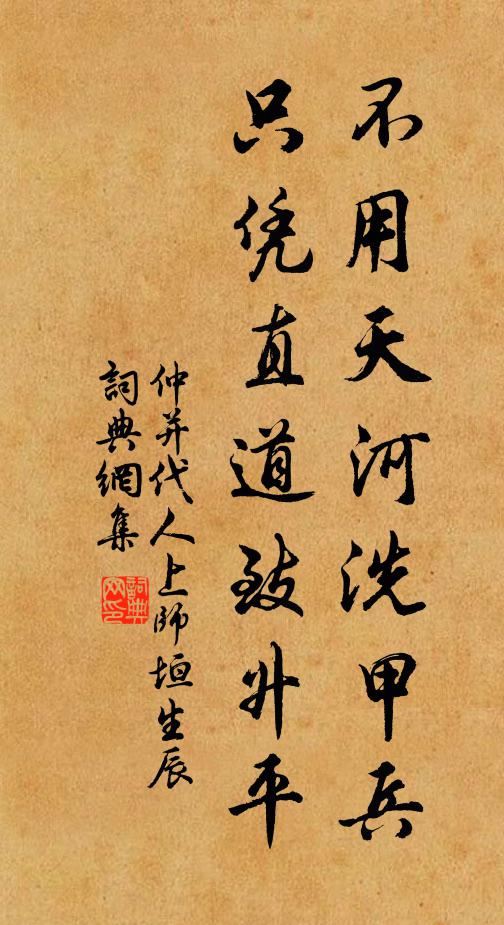 不用天河洗甲兵
只凭直道致升平
仲并代人上师垣生辰
詞典網集
詞典网印